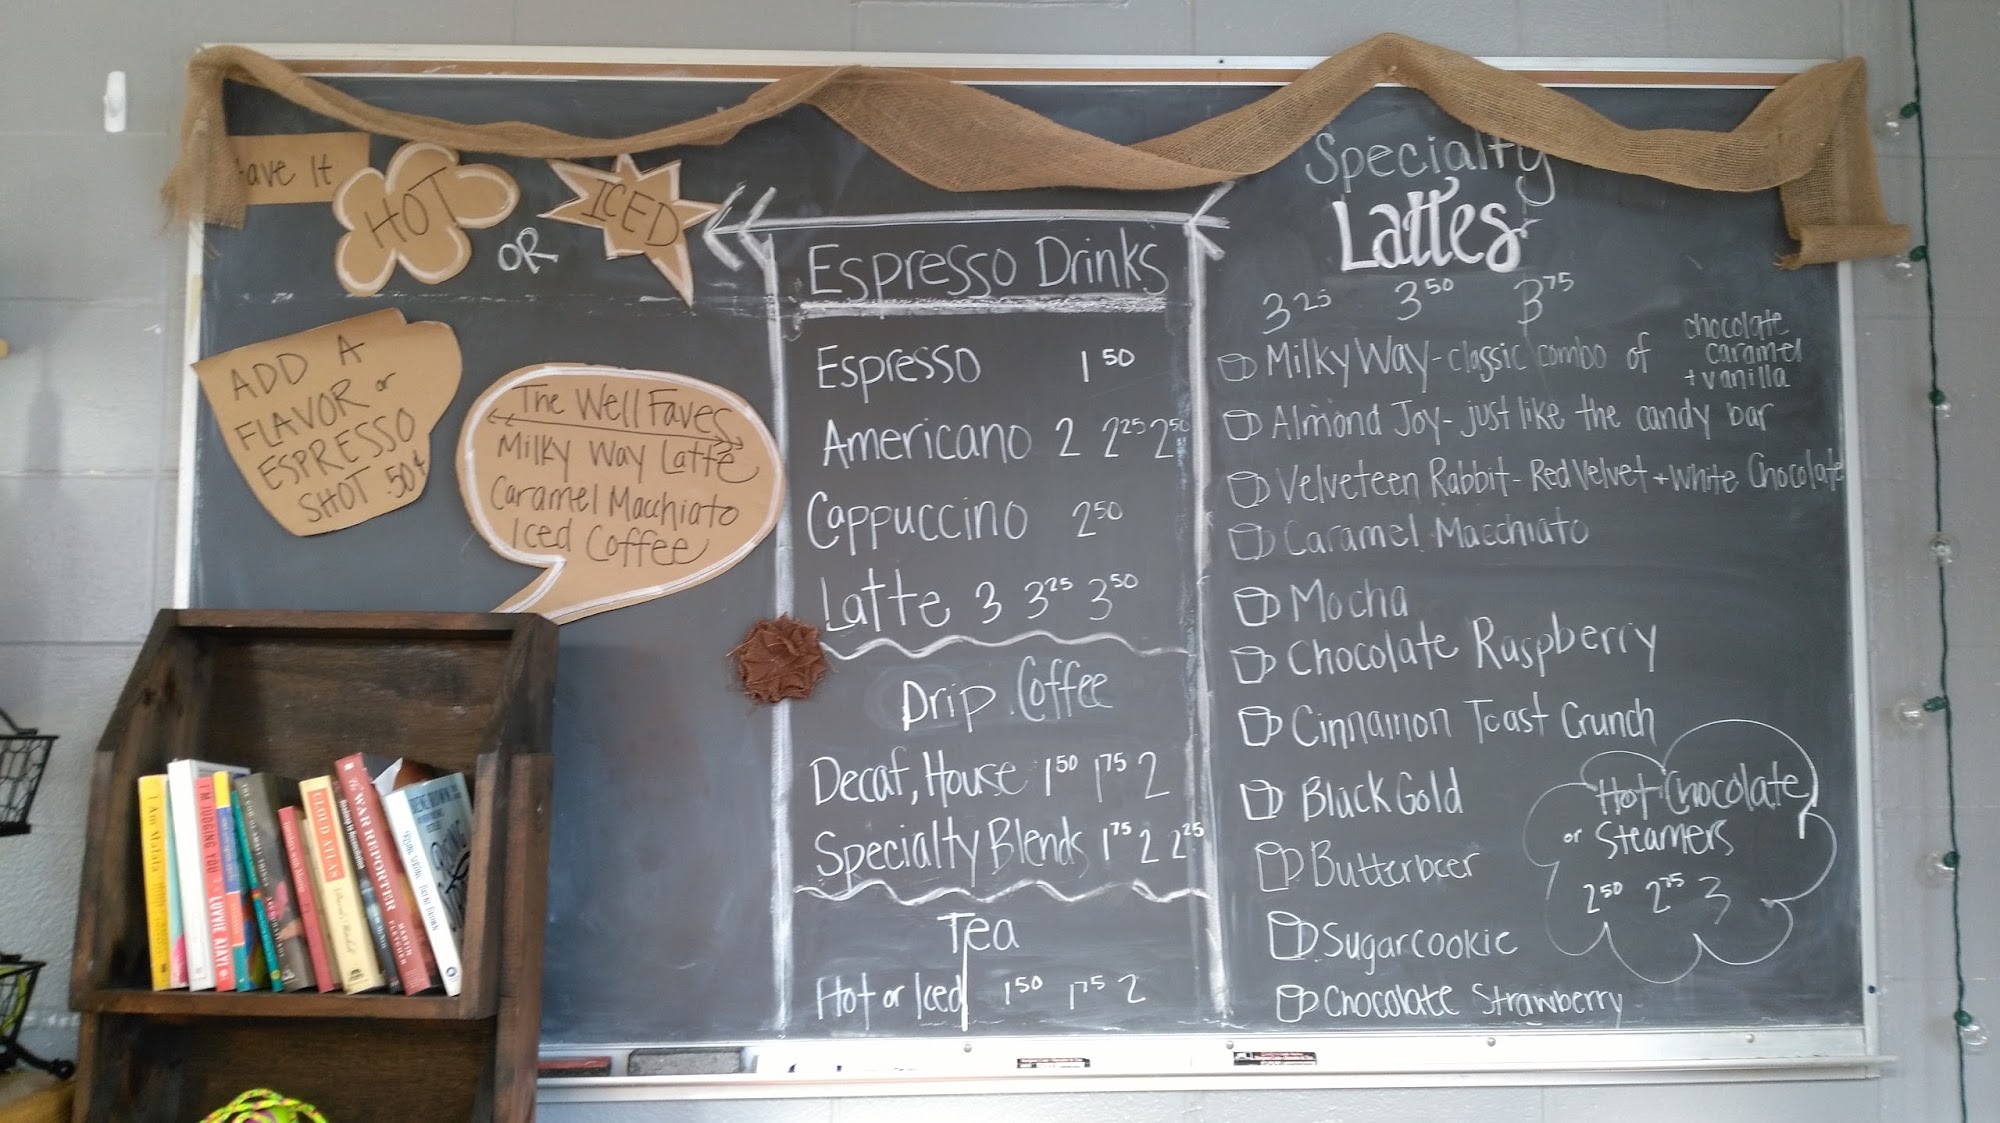 ave It
HOT
OR
ICED
ADD A
FLAVOR or
ESPRESSO
SHOT .50¢
The Well Faves
Milky Way Latte
Caramel Macchiato
Iced Coffee
Espresso Drinks
Espresso 1 50
Americano 2 2 25 2 50
Cappuccino 2 50
Latte 3 3 25 3 50
Drip Coffee
Decaf, House 1 50 1 75 2
Specialty Blends 1 75 2 2 25
Tea
Hot or Iced 1 50 1 75 2
Specialty
Lattes
3 25 3 50 3 75
Milky Way - classic combo of chocolate
caramel
+ vanilla
Almond Joy - just like the candy bar
Velveteen Rabbit - Red Velvet + White Chocolate
Caramel Macchiato
Mocha
Chocolate Raspberry
Cinnamon Toast Crunch
Black Gold
Butterbeer
Sugarcookie
Chocolate Strawberry
Hot Chocolate
or Steamers
2 50 2 75 3
I'M JUDGING YOU LUVVIE AJAYI
CLOUD ATLAS
The WAR REPORTER MARTIN FLETCHER